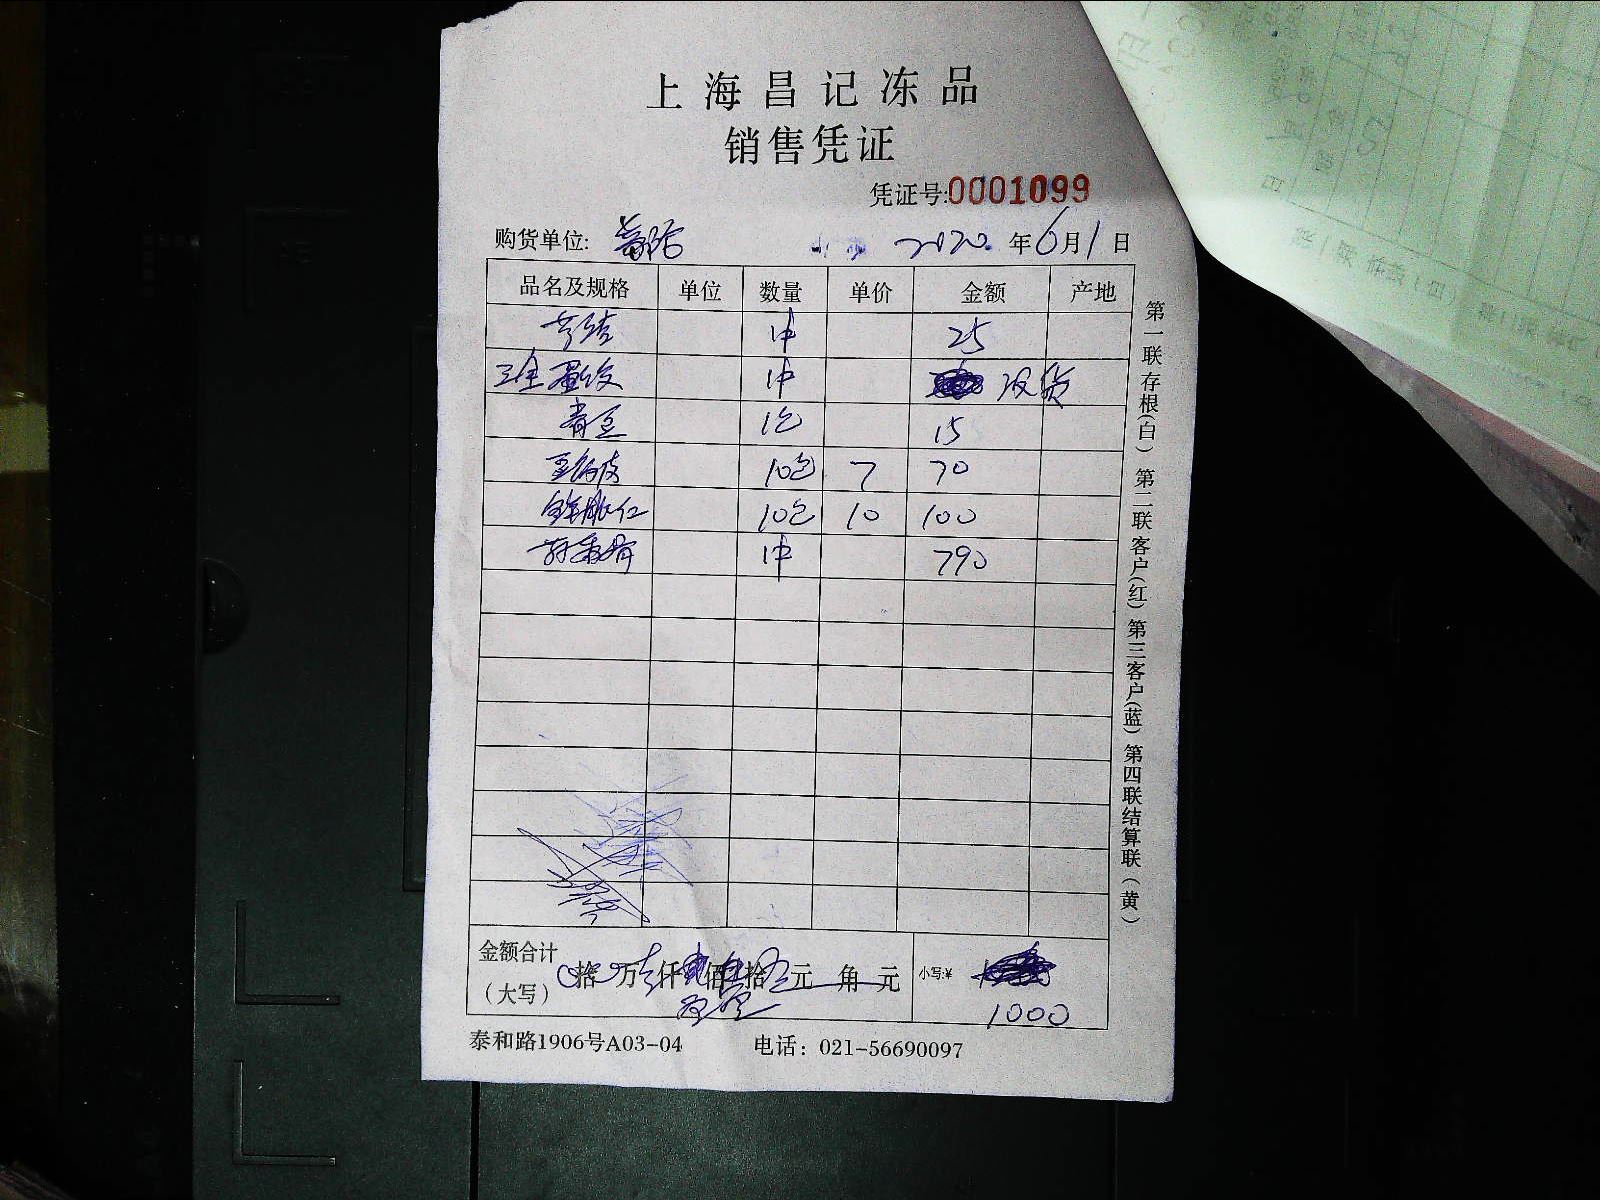 上海昌记冻品
销售凭证
凭证号:0001099
购货单位: 2020 年 6 月 1 日
品名及规格 单位 数量 单价 金额 产地
1件 25
三全蛋饺 1件 没货
青豆 1包 15
10包 7 70
10包 10 100
1件 790
金额合计(大写) 拾 万 仟 佰 拾 元 角 元 小写:¥
1000
泰和路1906号A03-04 电话：021-56690097
第一联存根(白) 第二联客户(红) 第三客户(蓝) 第四联结算联(黄)